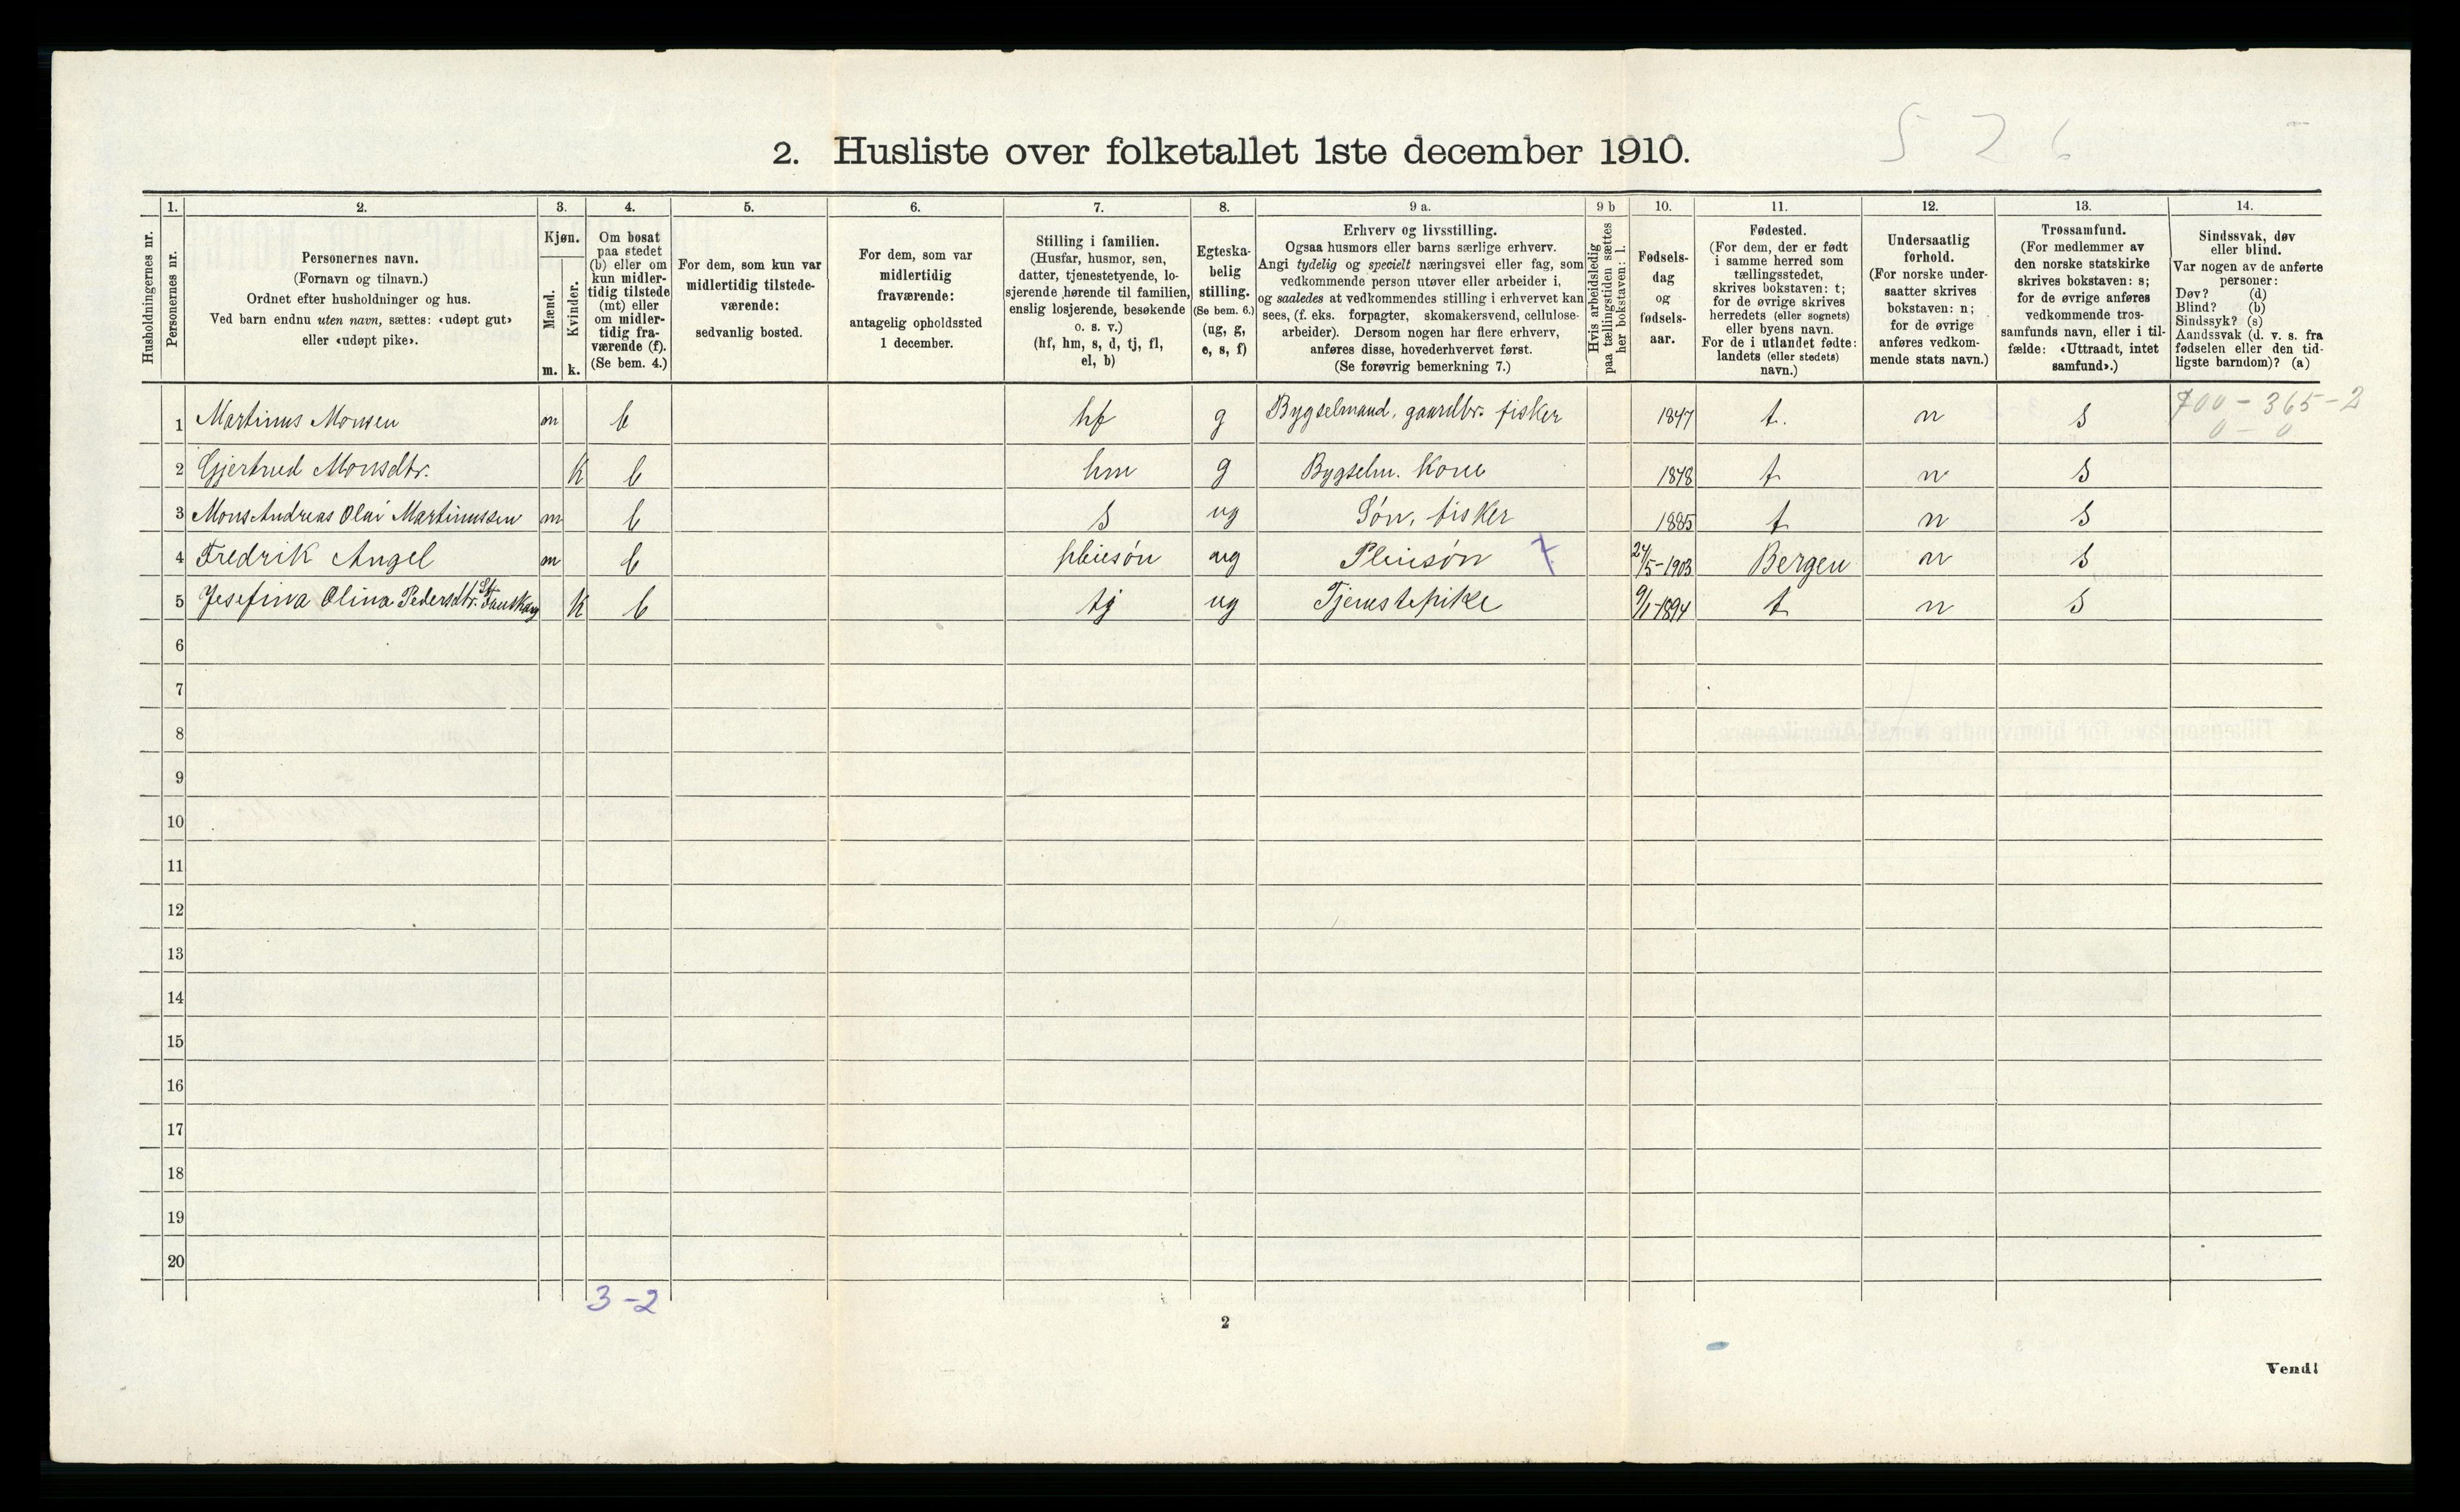 5 2 6
2. Husliste over folketallet 1ste december 1910.
Husholdningernes nr.
1. Personernes nr.
2. Personernes navn.
(Fornavn og tilnavn.)
Ordnet efter husholdninger og hus.
Ved barn endnu uten navn, sættes: «udøpt gut»
eller «udøpt pike».
3. Kjøn.
Mænd. m.
Kvinder. k.
4. Om bosat
paa stedet
(b) eller om
kun midler-
tidig tilstede
(mt) eller
om midler-
tidig fra-
værende (f).
(Se bem. 4.)
5. For dem, som kun var
midlertidig tilstede-
værende:
sedvanlig bosted.
6. For dem, som var
midlertidig
fraværende:
antagelig opholdssted
1 december.
7. Stilling i familien.
(Husfar, husmor, søn,
datter, tjenestetyende, lo-
sjerende hørende til familien,
enslig losjerende, besøkende
o. s. v.)
(hf, hm, s, d, tj, fl,
el, b)
8. Egteska-
belig
stilling.
(Se bem. 6.)
(ug, g,
e, s, f)
9 a. Erhverv og livsstilling.
Ogsaa husmors eller barns særlige erhverv.
Angi tydelig og specielt næringsvei eller fag, som
vedkommende person utøver eller arbeider i,
og saaledes at vedkommendes stilling i erhvervet kan
sees, (f. eks. forpagter, skomakersvend, cellulose-
arbeider). Dersom nogen har flere erhverv,
anføres disse, hovederhvervet først.
(Se forøvrig bemerkning 7.)
9 b Hvis arbeidsledig
paa tællingstiden sættes
her bokstaven: l.
10. Fødsels-
dag
og
fødsels-
aar.
11. Fødested.
(For dem, der er født
i samme herred som
tællingsstedet,
skrives bokstaven: t;
for de øvrige skrives
herredets (eller sognets)
eller byens navn.
For de i utlandet fødte:
landets (eller stedets)
navn.)
12. Undersaatlig
forhold.
(For norske under-
saatter skrives
bokstaven: n;
for de øvrige
anføres vedkom-
mende stats navn.)
13. Trossamfund.
(For medlemmer av
den norske statskirke
skrives bokstaven: s;
for de øvrige anføres
vedkommende tros-
samfunds navn, eller i til-
fælde: «Uttraadt, intet
samfund».)
14. Sindssvak, døv
eller blind.
Var nogen av de anførte
personer:
Døv? (d)
Blind? (b)
Sindssyk? (s)
Aandssvak (d. v. s. fra
fødselen eller den tid-
ligste barndom)? (a)
1 Martinus Monsen m b hf g Bygselmand, gaardbr. fisker 1847 t. n s 700 - 365 - 2
0 - 0
2 Gjertrud Monsdtr. K b hm g Bygselm. Kone 1848 t n s
3 Mons Andreas Olai Martinussen m b s ug Søn, fisker 1885 t n s
4 Fredrik Angel m b pleiesøn ug Pleiesøn 7 24/5-1903 Bergen n s
5 Josefina Olina Pedersdtr. K b tj ug Tjenestepike 9/1-1894 t n s
6
7
8
9
10
11
12
13
14
15
16
17
18
19
20
3-2
2
Vend!